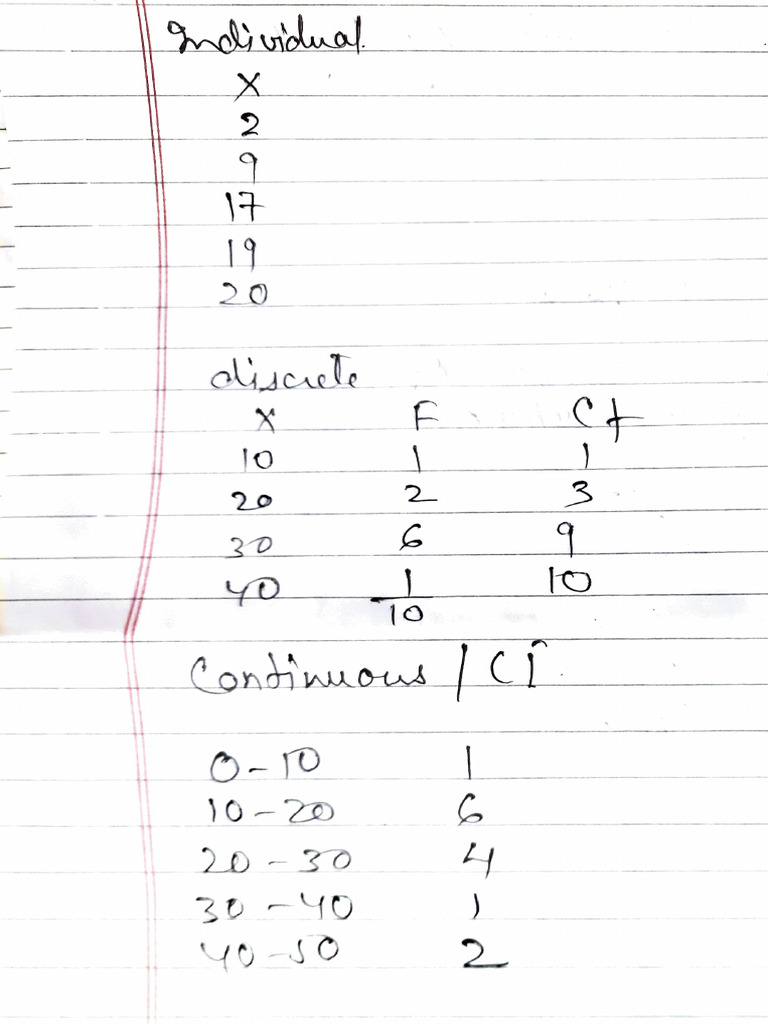 Individual
X
2
9
17
19
20
discrete
X F Cf
10 1 1
20 2 3
30 6 9
40 1 10
10
Continuous / CI
0-10 1
10-20 6
20-30 4
30-40 1
40-50 2